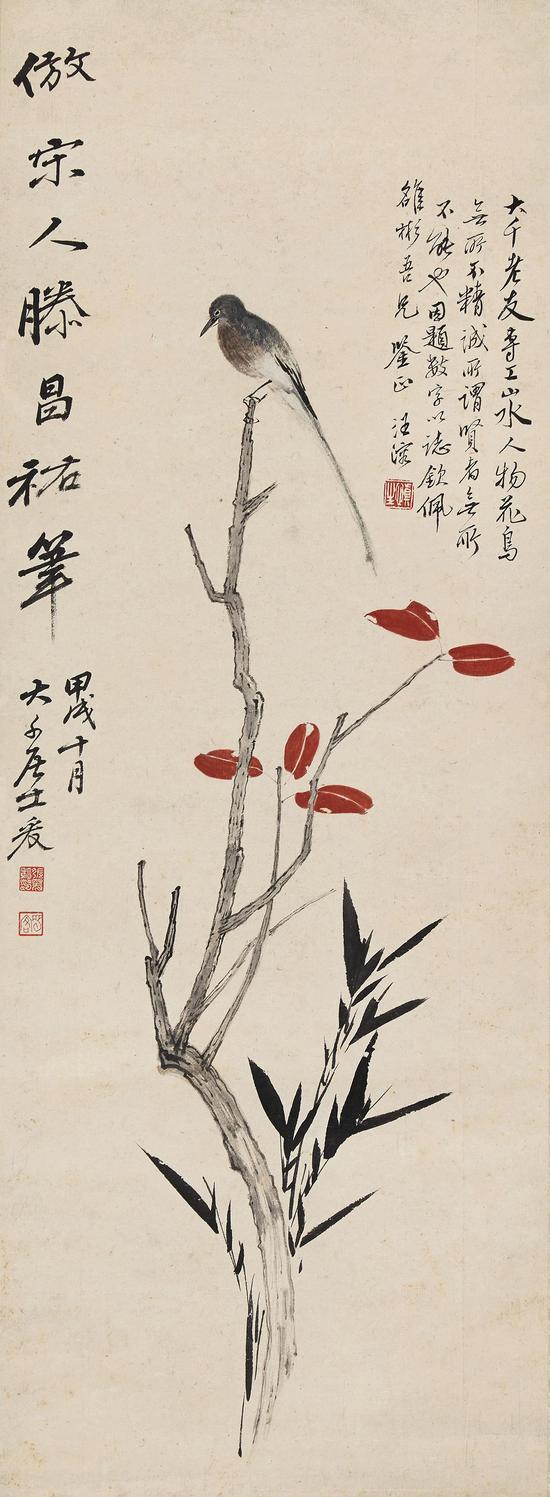 大千老友專工山水人物花鳥
無所不精誠所謂賢者無所
不能也因題數字以誌欽佩
雒彬吾兄 鑒正 汪溶
慎生
倣宋人滕昌祐筆
甲戌十月
大千居士爰